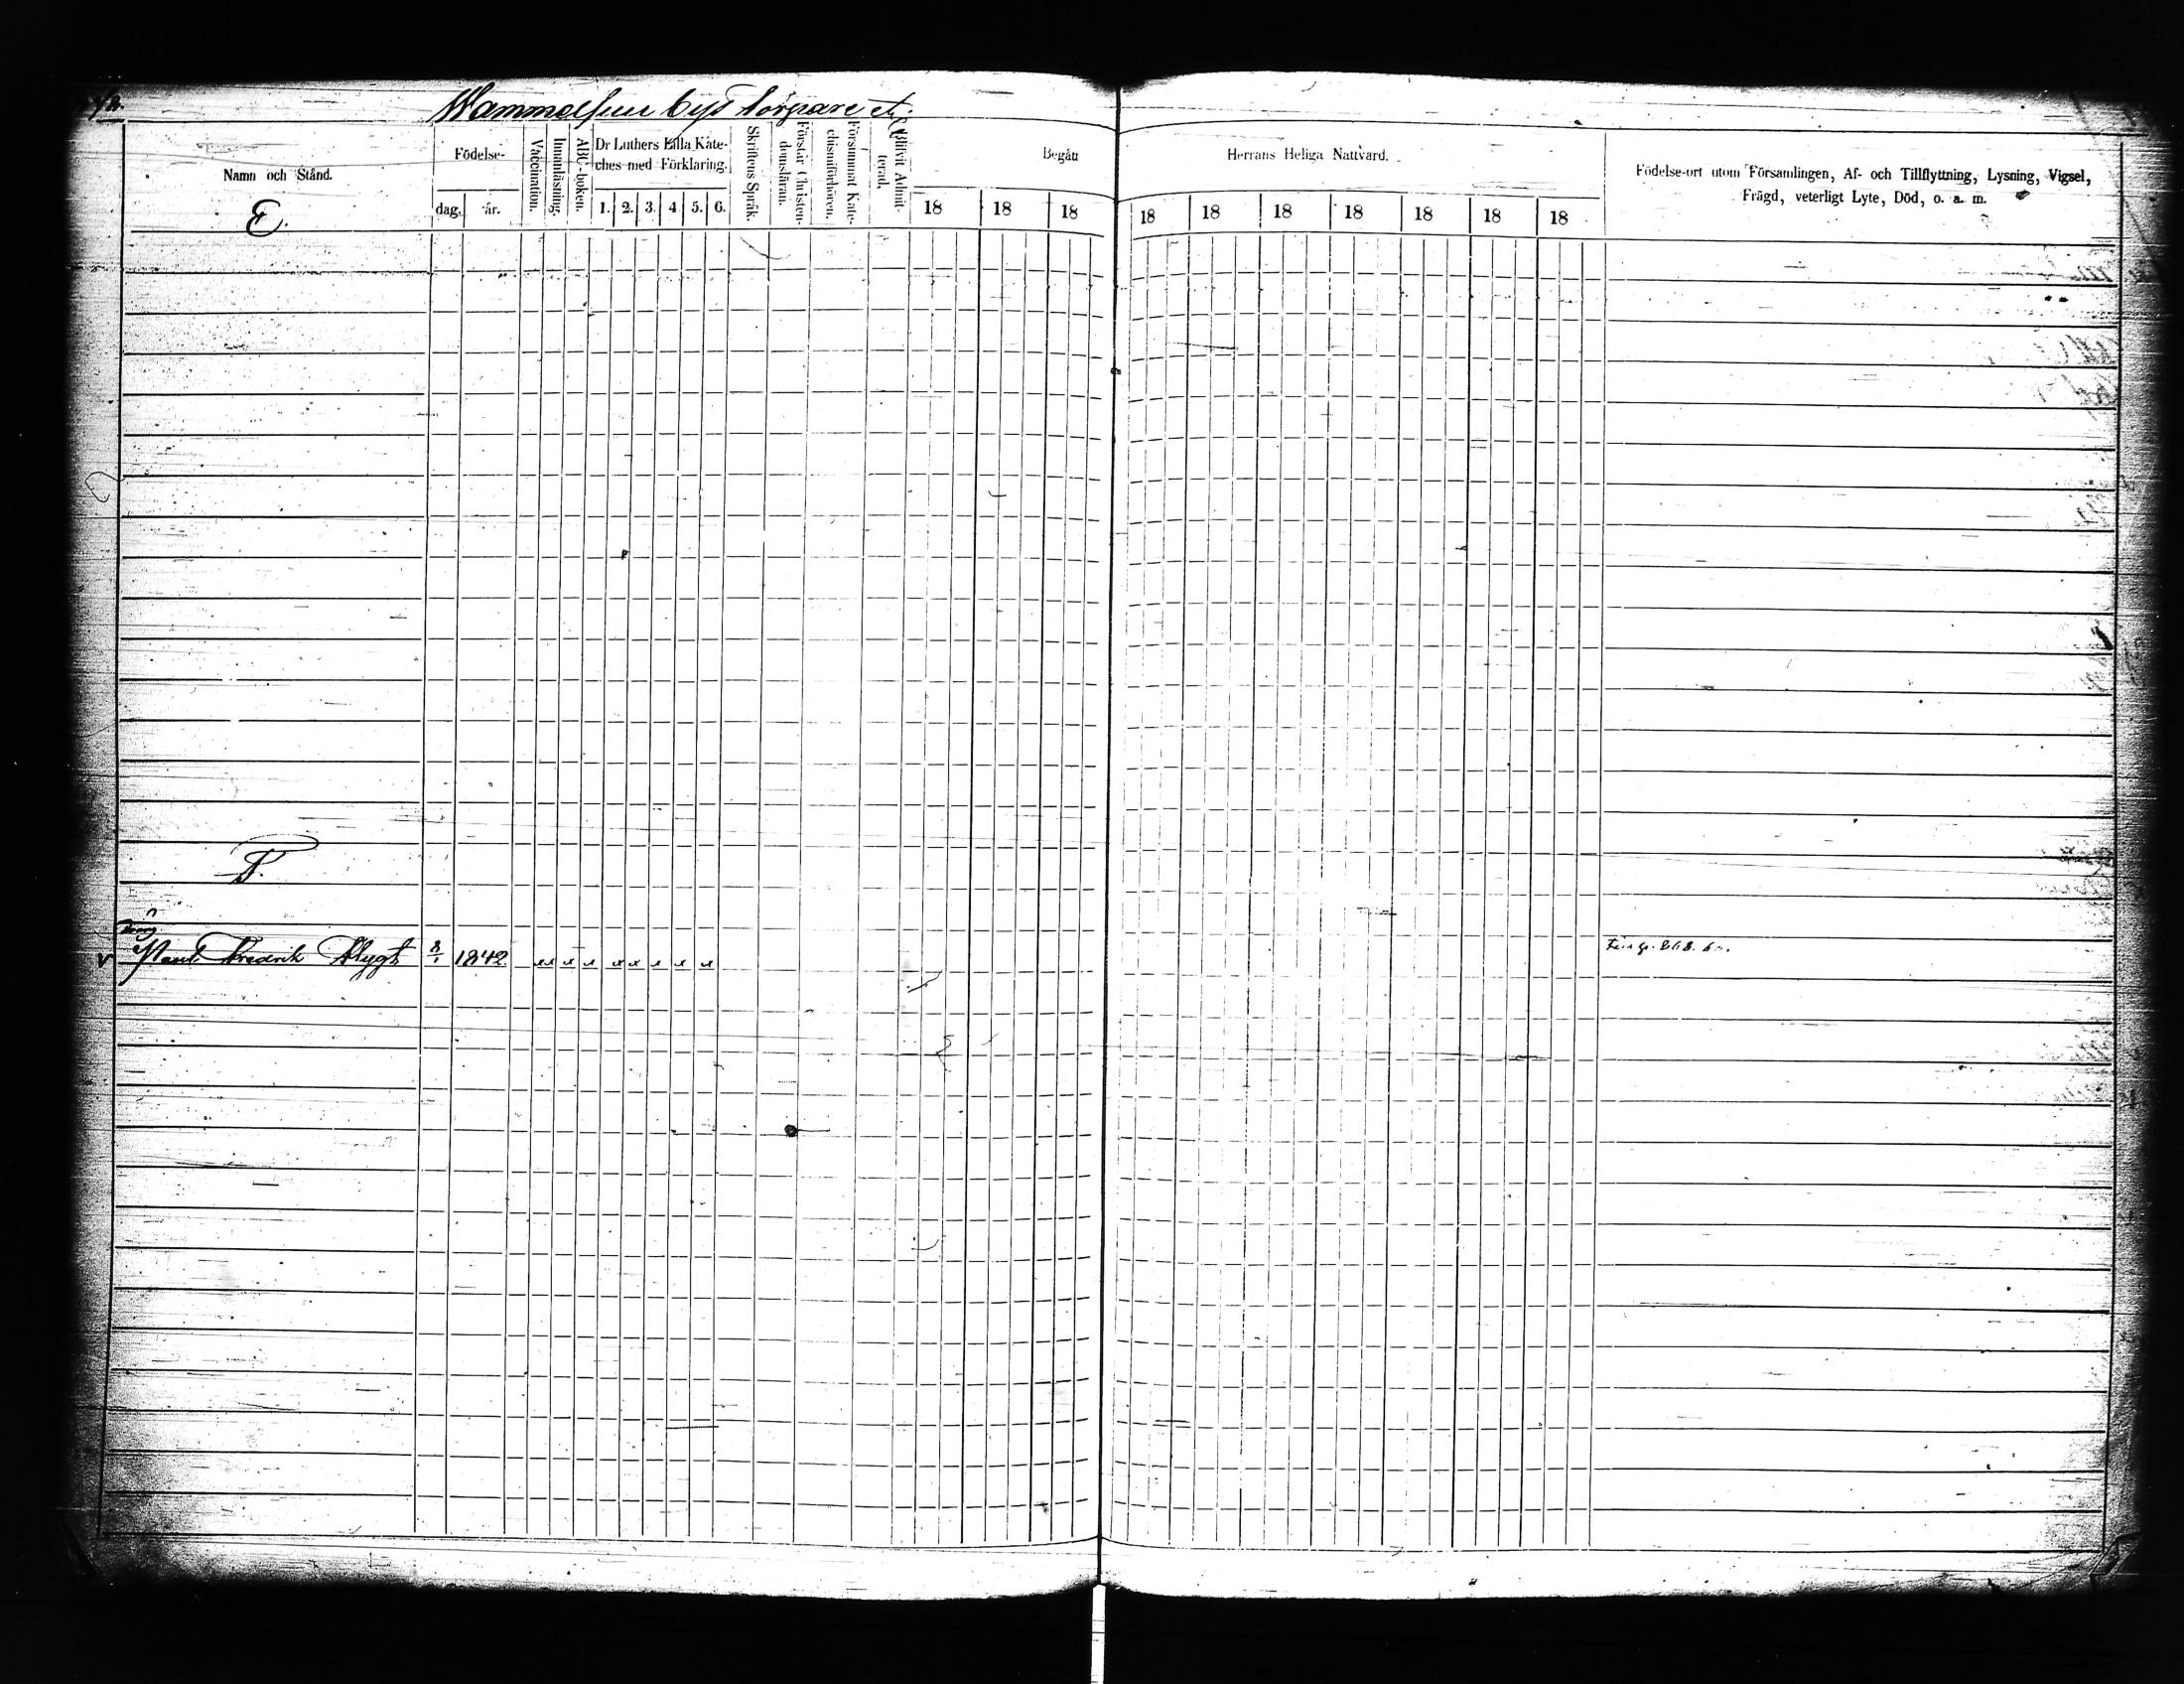 Wammelsuu bys torpare etc.
Namn och Stånd.
Födelse-
dag. år.
Vaccination.
Innanläsning.
ABC-boken.
Dr Luthers Lilla Kate-
ches med Förklaring.
1. 2. 3. 4. 5. 6.
Skriftens Språk.
Förstår Christen-
domsläran.
Försummat Kate-
chismiförhören.
Blifvit Admit-
terad.
Begått
18 18 18
Herrans Heliga Nattvard.
18 18 18 18 18 18 18
Födelse-ort utom Församlingen, Af- och Tillflyttning, Lysning, Vigsel,
Frägd, veterligt Lyte, Död, o. a. m.
E.
F.
Fredrik Flygt 8/1 1842 x x x x x x x x x